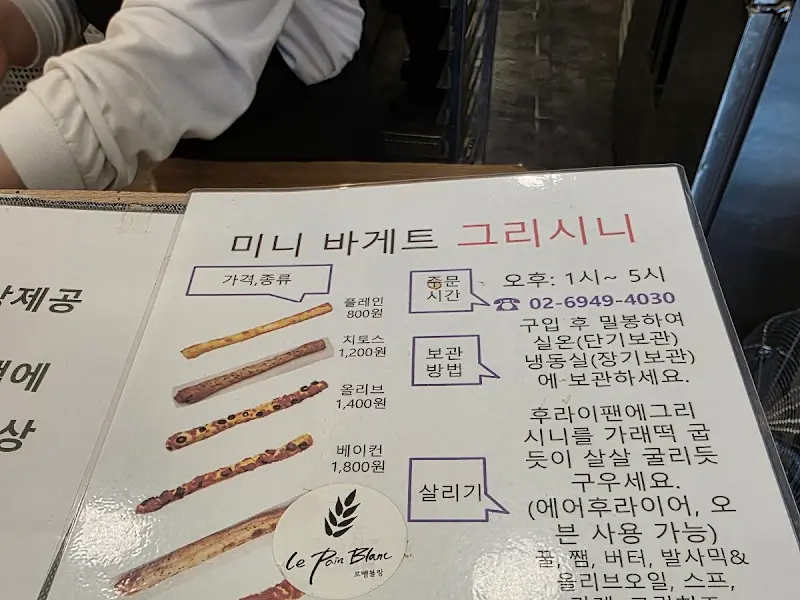 미니 바게트 그리시니
가격,종류
플레인
800원
치토스
1,200원
올리브
1,400원
베이컨
1,800원
주문
시간
오후: 1시~ 5시
☎ 02-6949-4030
보관
방법
구입 후 밀봉하여
실온(단기보관)
냉동실(장기보관)
에 보관하세요.
살리기
후라이팬에그리
시니를 가래떡 굽
듯이 살살 굴리듯
구우세요.
(에어후라이어, 오
븐 사용 가능)
꿀, 쨈, 버터, 발사믹&
올리브오일, 스프,
Le Pain Blanc
르뺑블랑
제공
에
상